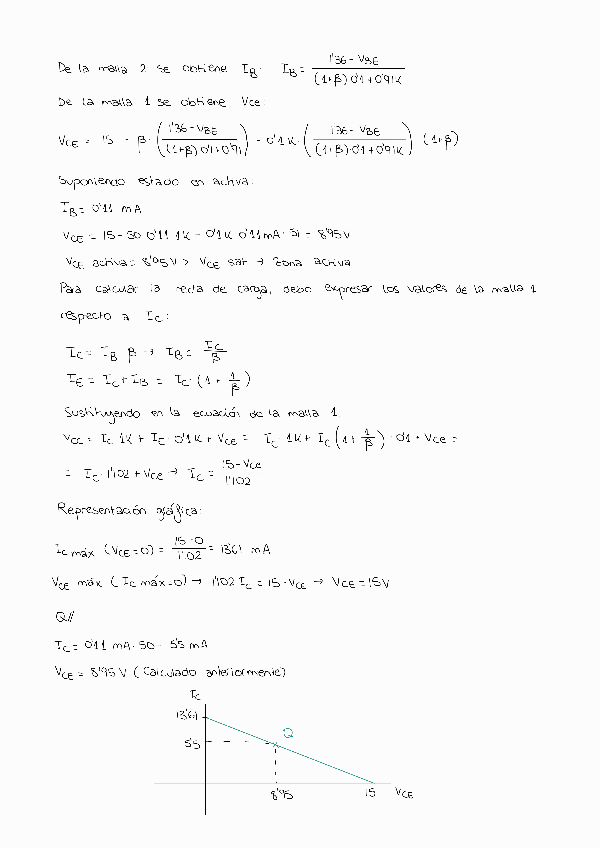 De la malla 2 se obtiene I_B: I_B = (1'36 - V_BE) / ((1+β) 0'1 + 0'91K)
De la malla 1 se obtiene Vce:
V_CE = 15 - β · ((1'36 - V_BE) / ((1+β) 0'1 + 0'91)) - 0'1K · ((1'36 - V_BE) / ((1+β) · 0'1 + 0'91K)) (1+β)
Suponiendo estado en activa:
I_B = 0'11 mA
V_CE = 15 - 50 0'11 1K - 0'1K 0'11mA · 51 = 8'95V
V_CE activa = 8'95V > V_CE sat → Zona activa
Para calcular la recta de carga, debo expresar los valores de la malla 1
respecto a I_C:
I_C = I_B β → I_B = I_C / β
I_E = I_C + I_B = I_C · (1 + 1/β)
Sustituyendo en la ecuación de la malla 1
V_CC = I_C 1K + I_C · 0'1K + V_CE = I_C 1K + I_C (1 + 1/β) · 0'1 + V_CE =
= I_C · 1'102 + V_CE → I_C = (15 - V_CE) / 1'102
Representación gráfica:
I_C máx (V_CE = 0) = (15 - 0) / 1'102 = 13'61 mA
V_CE máx (I_C máx = 0) → 1'102 I_C = 15 - V_CE → V_CE = 15V
Q//
I_C = 0'11 mA · 50 = 5'5 mA
V_CE = 8'95 V (Calculado anteriormente)
I_C
13'61
Q
5'5
8'95 15 V_CE